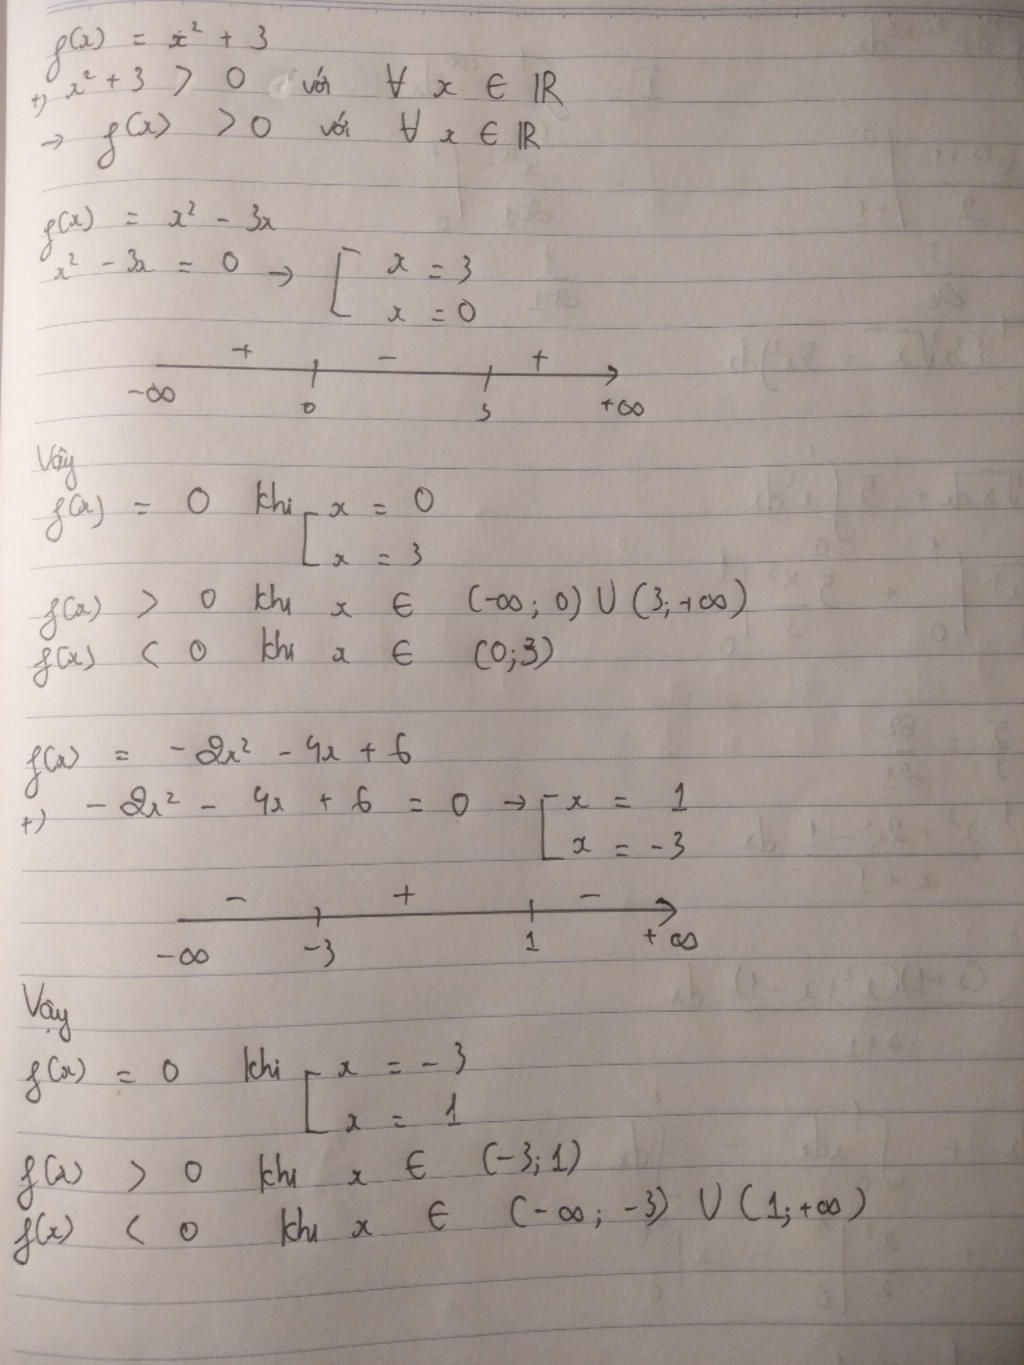 f(x) = x² + 3
+) x² + 3 > 0 với ∀ x ∈ ℝ
→ f(x) > 0 với ∀ x ∈ ℝ
f(x) = x² - 3x
x² - 3x = 0 → [ x = 3
x = 0
+ - +
-∞ 0 3 +∞
Vậy
f(x) = 0 khi [ x = 0
x = 3
f(x) > 0 khi x ∈ (-∞; 0) ∪ (3; +∞)
f(x) < 0 khi x ∈ (0;3)
f(x) = -2x² - 4x + 6
+) -2x² - 4x + 6 = 0 → [ x = 1
x = -3
- + -
-∞ -3 1 +∞
Vậy
f(x) = 0 khi [ x = -3
x = 1
f(x) > 0 khi x ∈ (-3; 1)
f(x) < 0 khi x ∈ (-∞; -3) ∪ (1; +∞)